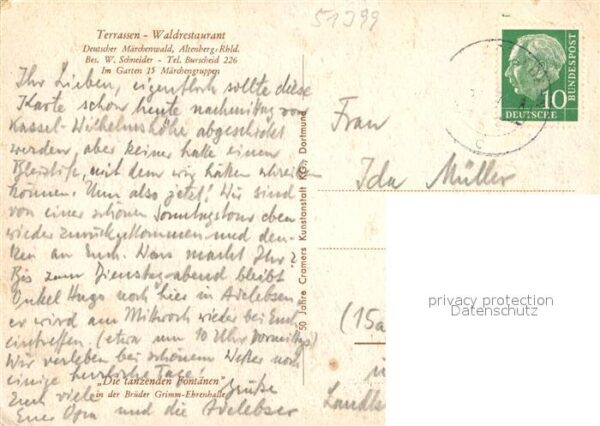 51399
Terrassen - Waldrestaurant
Deutscher Märchenwald, Altenberg-Rhld.
Bes. W. Schneider - Tel. Burscheid 226
Im Garten 15 Märchengruppen
Ihr Lieben, eigentlich sollte diese
Karte schon heute nachmittag von
Kassel-Wilhelmshöhe abgeschickt
werden, aber keiner hatte einen
Bleistift, mit dem wir hätten schreiben
können. Nun also jetzt! Wir sind
von einer schönen Sonntagstour eben
wieder zurückgekommen und den-
ken an Euch. Was macht Ihr?
Bis zum Dienstag-abend bleibt
Onkel Hugo noch hier in Adelebsen,
er wird am Mittwoch wieder bei Euch
eintreffen. (etwa um 10 Uhr Vormittags)
Wir verleben bei schönem Wetter noch
einige herrliche Tage!
"Die tanzenden Fontänen"
in der Brüder Grimm-Ehrenhalle
Euch viele Grüße
Eure Oma und die Adelebser
50 Jahre Cramers Kunstanstalt KG., Dortmund
DEUTSCHE
BUNDESPOST
10
Frau
Ida Müller
(15a
Landk
privacy protection
Datenschutz